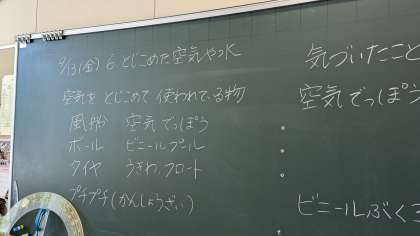 9/13(金) 6. とじこめた空気や水
空気をとじこめて使われている物
風船 空気でっぽう
ボール ビニールプール
タイヤ うきわ、フロート
プチプチ(かんしょうざい)
気づいたこと
空気でっぽう
ビニールぶくろ